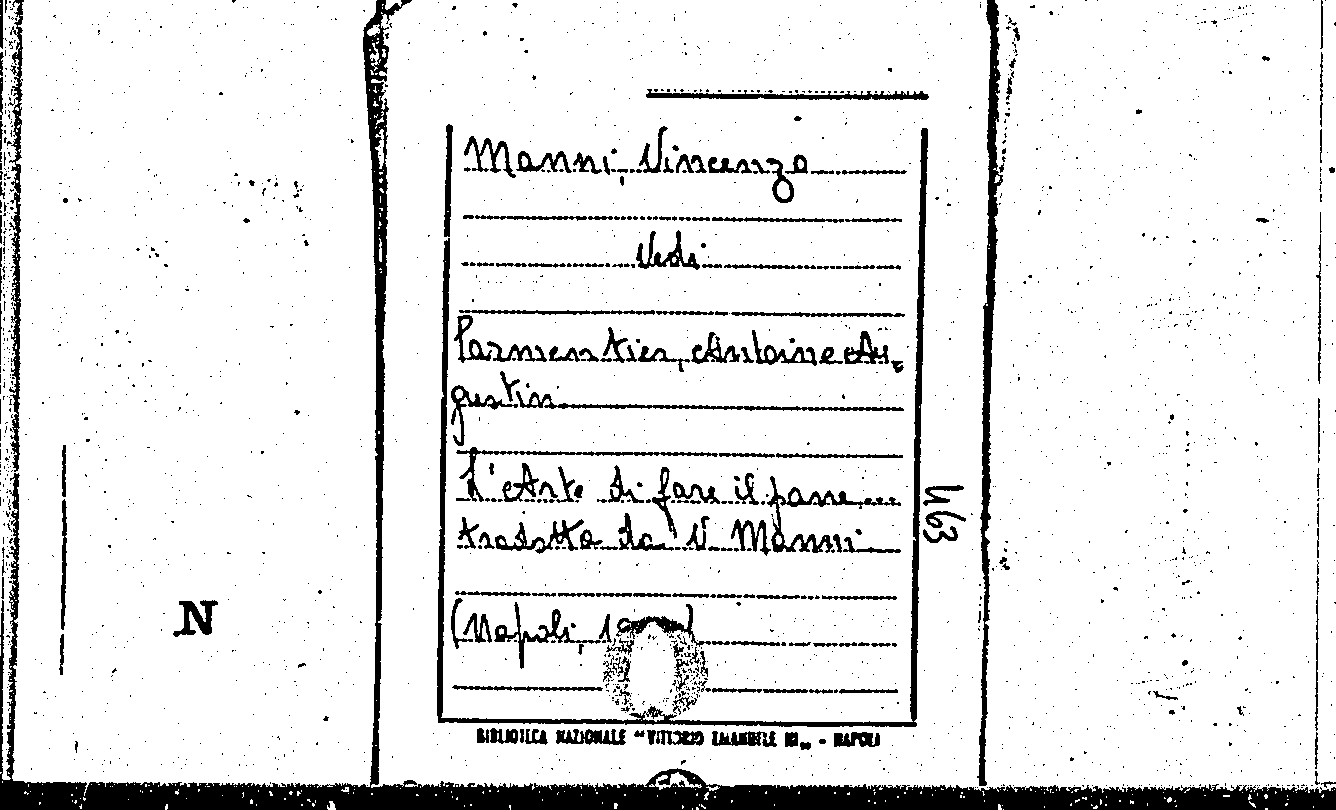 Manni, Vincenzo
Vedi
Parmentier, Antoine Au-
gustin
L'Arte di fare il pane...
tradotta da V. Manni
(Napoli,
BIBLIOTECA NAZIONALE "VITTORIO EMANUELE III„ - NAPOLI
463
N